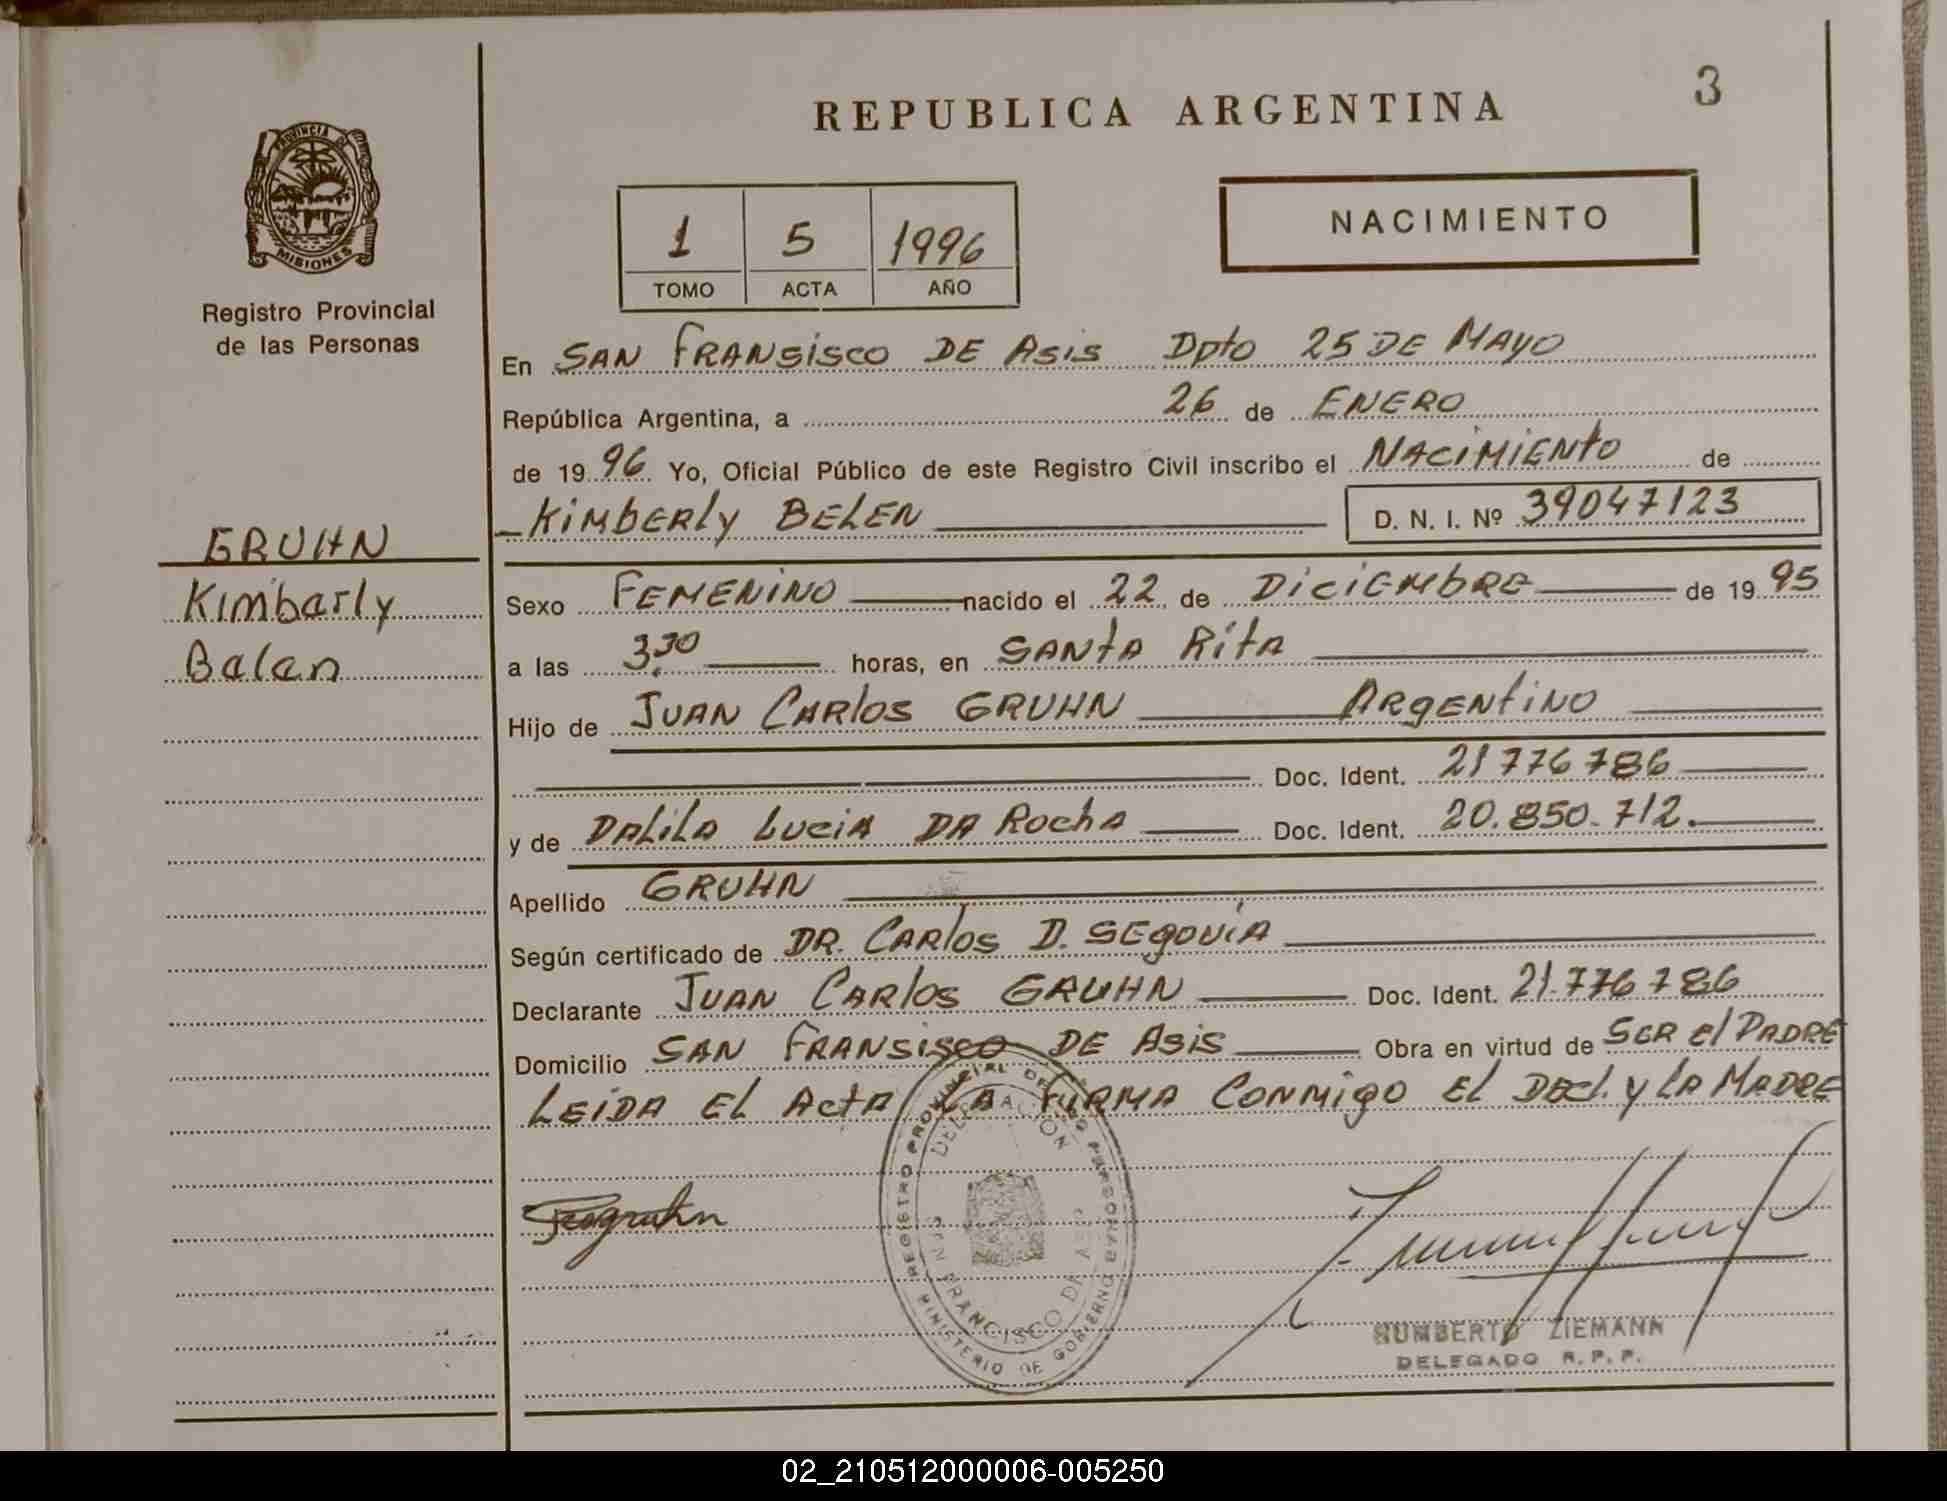 REPUBLICA ARGENTINA
3
PROVINCIA DE
MISIONES
Registro Provincial
de las Personas
1 5 1996
TOMO ACTA AÑO
NACIMIENTO
En SAN FRANSISCO DE ASIS Dpto 25 DE MAYO
República Argentina, a 26 de ENERO
de 19 96 Yo, Oficial Público de este Registro Civil inscribo el NACIMIENTO de
KIMBERLY BELEN D. N. I. Nº 39047123
GRUHN
Kimberly
Belen
Sexo FEMENINO nacido el 22 de DICIEMBRE de 19 95
a las 3.30 horas, en SANTA RITA
Hijo de JUAN CARLOS GRUHN ARGENTINO
Doc. Ident. 21 776 786
y de DALILA LUCIA DA ROCHA Doc. Ident. 20.850.712.
Apellido GRUHN
Según certificado de DR. CARLOS D. SEGOVIA
Declarante JUAN CARLOS GRUHN Doc. Ident. 21.776 786
Domicilio SAN FRANSISCO DE ASIS Obra en virtud de SER El PADRE
LEIDA EL ACTA LA FIRMA CONMIGO EL DECl. Y LA MADRE
REGISTRO PROVINCIAL DE LAS PERSONAS
DELEGACION
SAN FRANCISCO DE ASIS
MINISTERIO DE GOBIERNO
HUMBERTO ZIEMANN
DELEGADO R. P. P.
02_210512000006-005250